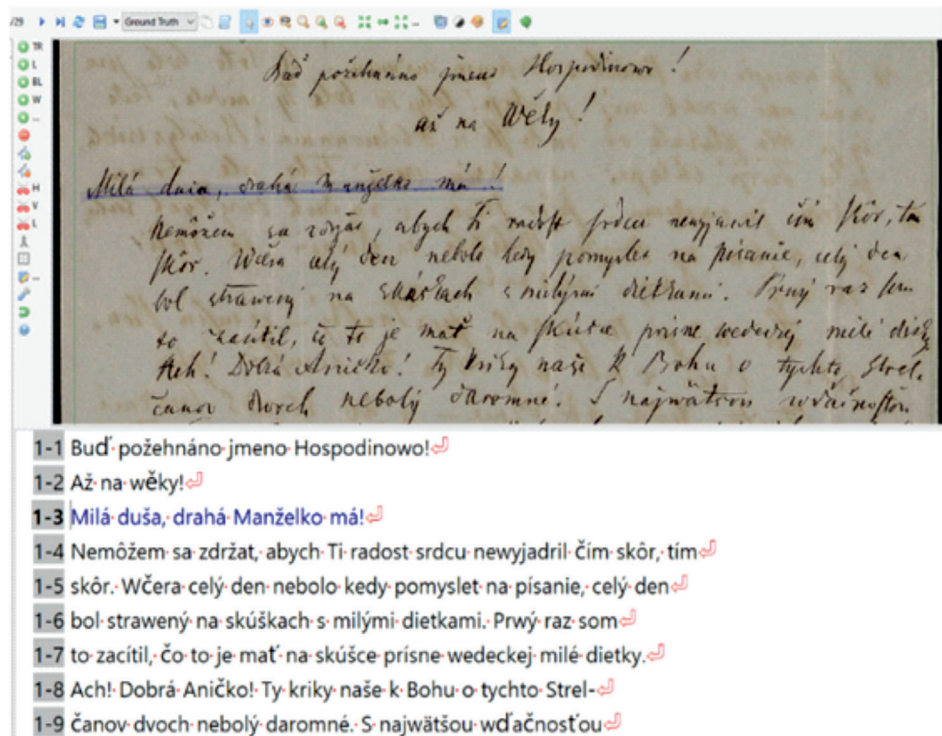 /29 Ground Truth
TR
L
BL
W
...
H
V
L
...
Buď požehnáno jmeno Hospodinowo!
až na Wěky!
Milá duša, drahá Manželko má!
Nemôžem sa zdržat, abych Ti radost srdcu newyjadril čím skôr, tím
skôr. Wčera celý den nebolo kedy pomyslet na písanie, celý den
bol strawený na skúškach s milými dietkami. Prwý raz som
to zacítil, čo to je mať na skúšce prísne wedeckej milé dietky
Ach! Dobrá Aničko! Ty kriky naše k Bohu o tychto Strel-
čanov dvoch nebolý daromné. S najwätšou wďačnosťou
1-1 Buď požehnáno jmeno Hospodinowo!
1-2 Až na wěky!
1-3 Milá duša, drahá Manželko má!
1-4 Nemôžem sa zdržat, abych Ti radost srdcu newyjadril čím skôr, tím
1-5 skôr. Wčera celý den nebolo kedy pomyslet na písanie, celý den
1-6 bol strawený na skúškach s milými dietkami. Prwý raz som
1-7 to zacítil, čo to je mať na skúšce prísne wedeckej milé dietky.
1-8 Ach! Dobrá Aničko! Ty kriky naše k Bohu o tychto Strel-
1-9 čanov dvoch nebolý daromné. S najwätšou wďačnosťou